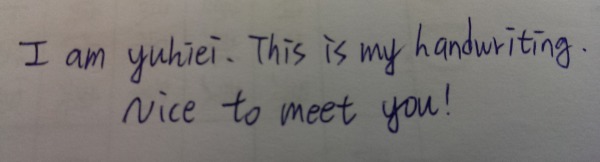 I am yuhiei. This is my handwriting.
Nice to meet you!